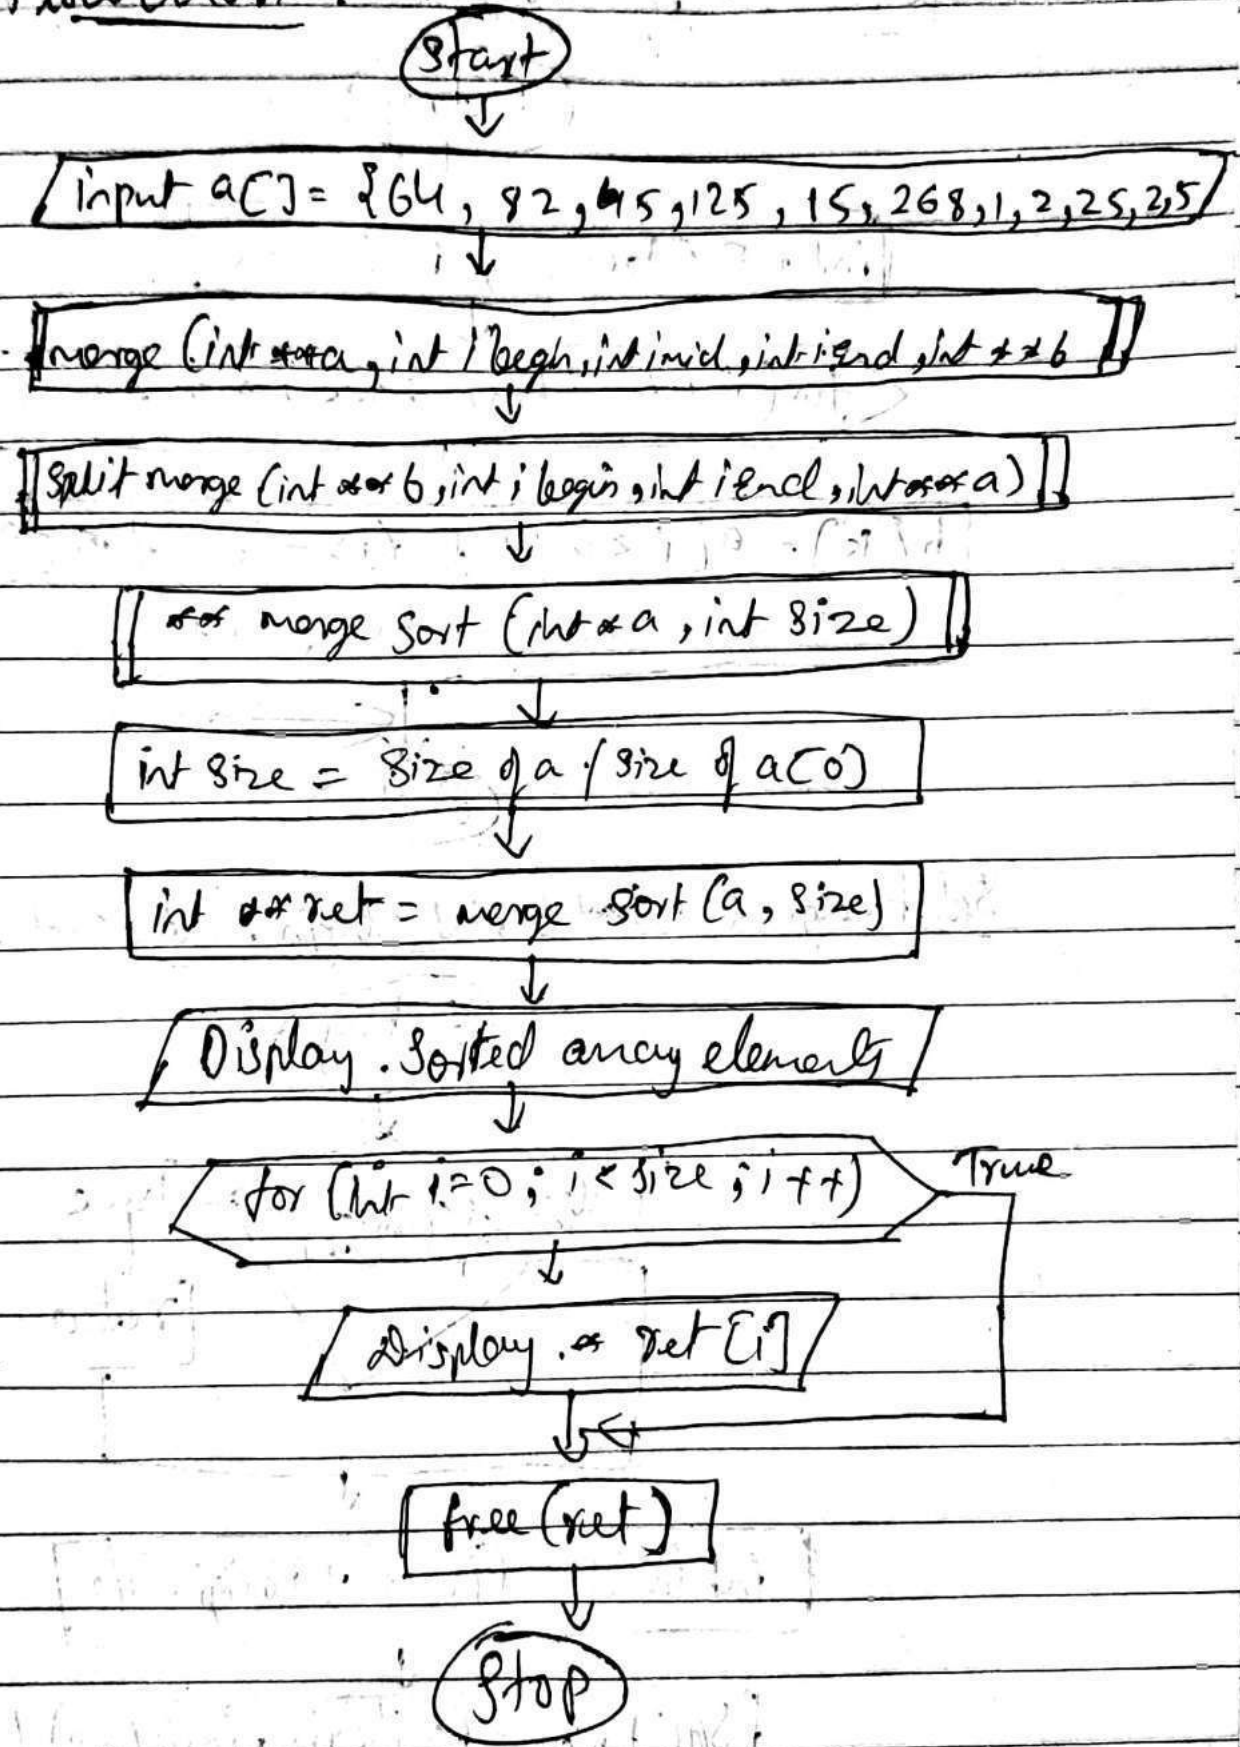 Start
input a[] = {64, 82, 45, 125, 15, 268, 1, 2, 25, 2, 5
merge (int **a, int ibegin, int imid, int iend, int **b
Split merge (int **b, int ibegin, int iEnd, int **a)
** merge Sort (int *a, int Size)
int Size = Size of a / Size of a[0]
int **ret = merge sort (a, Size)
Display. Sorted array elements
for (int i=0; i < Size; i++)
True
Display. * ret [i]
free (ret)
Stop